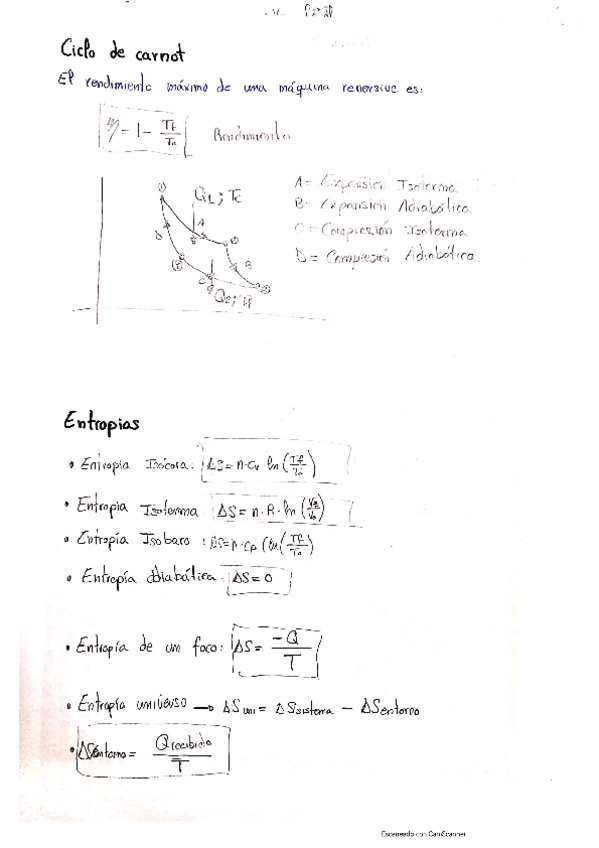 Ciclo de carnot
El rendimiento máximo de una máquina reversive es:
η = 1 - Tf/Ta Rendimiento
A = Expansión Isoterma
B = Expansión Adiabática
C = Compresión Isoterma
D = Compresión Adiabática
Q1; Tc
A
D
B
C
Q2; Tf
Entropias
• Entropia Isócora: ΔS = n·Cv·ln(Tf/To)
• Entropia Isoterma ΔS = n·R·ln
• Entropía Isobara: ΔS = n·Cp(ln(Tf/To)
• Entropía Adiabática. ΔS = 0
• Entropía de un foco: ΔS = -Q/T
• Entropía universo → ΔS uni = ΔS sistema - ΔS entorno
• ΔS entorno = Q recibido/T
Escaneado con CamScanner